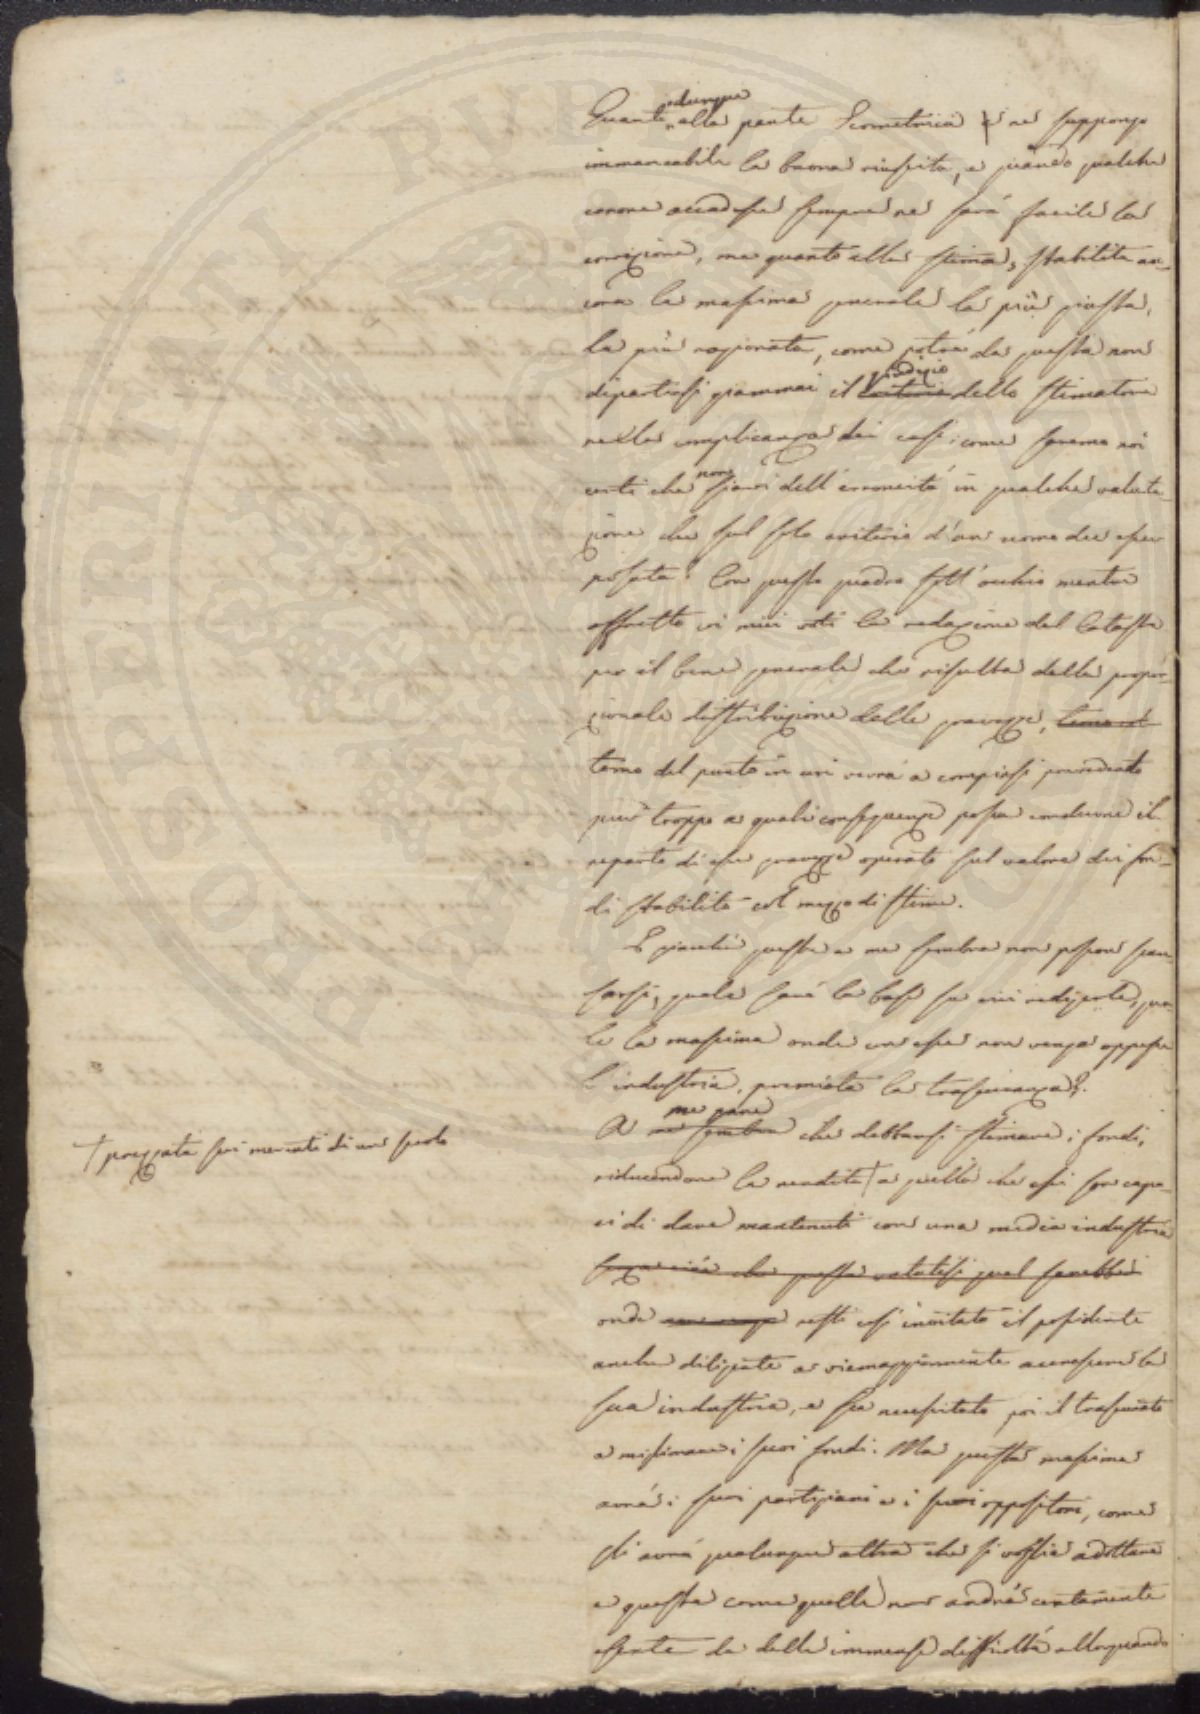 Quanto dunque alla parte Geometrica ne suppongo
immancabile la buona riuscita, e quando qualche
errore accadesse sempre ne sarà facile la
correzione, ma quanto alla stima, stabilita an-
cora la massima generale la più giusta,
la più ragionata, come potrà da questa non
dipartirsi giammai il criterio giudizio dello stimatore
nella complicanza dei casi; come saremo noi
certi che non siavi dell'erroneità in qualche valuta-
zione che sul solo criterio d'un uomo dee esser
posata? Con questo quadro sott'occhio mentre
affretto coi miei voti la redazione del Catasto
per il bene generale che risulta dalla propor-
zionale distribuzione delle gravezze,
temo del punto in cui verrà a compiersi prevedendo
pur troppo a quali conseguenze possa condurre il
reparto di esse gravezze operato sul valore dei fon-
di stabilito col mezzo di stime.
E giacché queste a me sembra non possono scan-
sarsi, quale sarà la base su cui redigerle, qua-
le la massima onde con essa non venga oppressa
l'industria, premiata la trascuranza?
A me sembra me pare che debbansi stimare i fondi,
riducendone la rendita † a quella che essi son capa-
ci di dare mantenuti con una media industria
† prezzata sui mercati di un secolo
onde resti così invitato il possidente
anche diligente a viemaggiormente accrescere la
sua industria, e sia necessitato poi il trascurato
a migliorare i suoi fondi. Ma questa massima
avrà i suoi partigiani e i suoi oppositori, come
gli avrà qualunque altra che si voglia adottare
e questa come quella non andrà certamente
esente da delle immense difficoltà allorquando